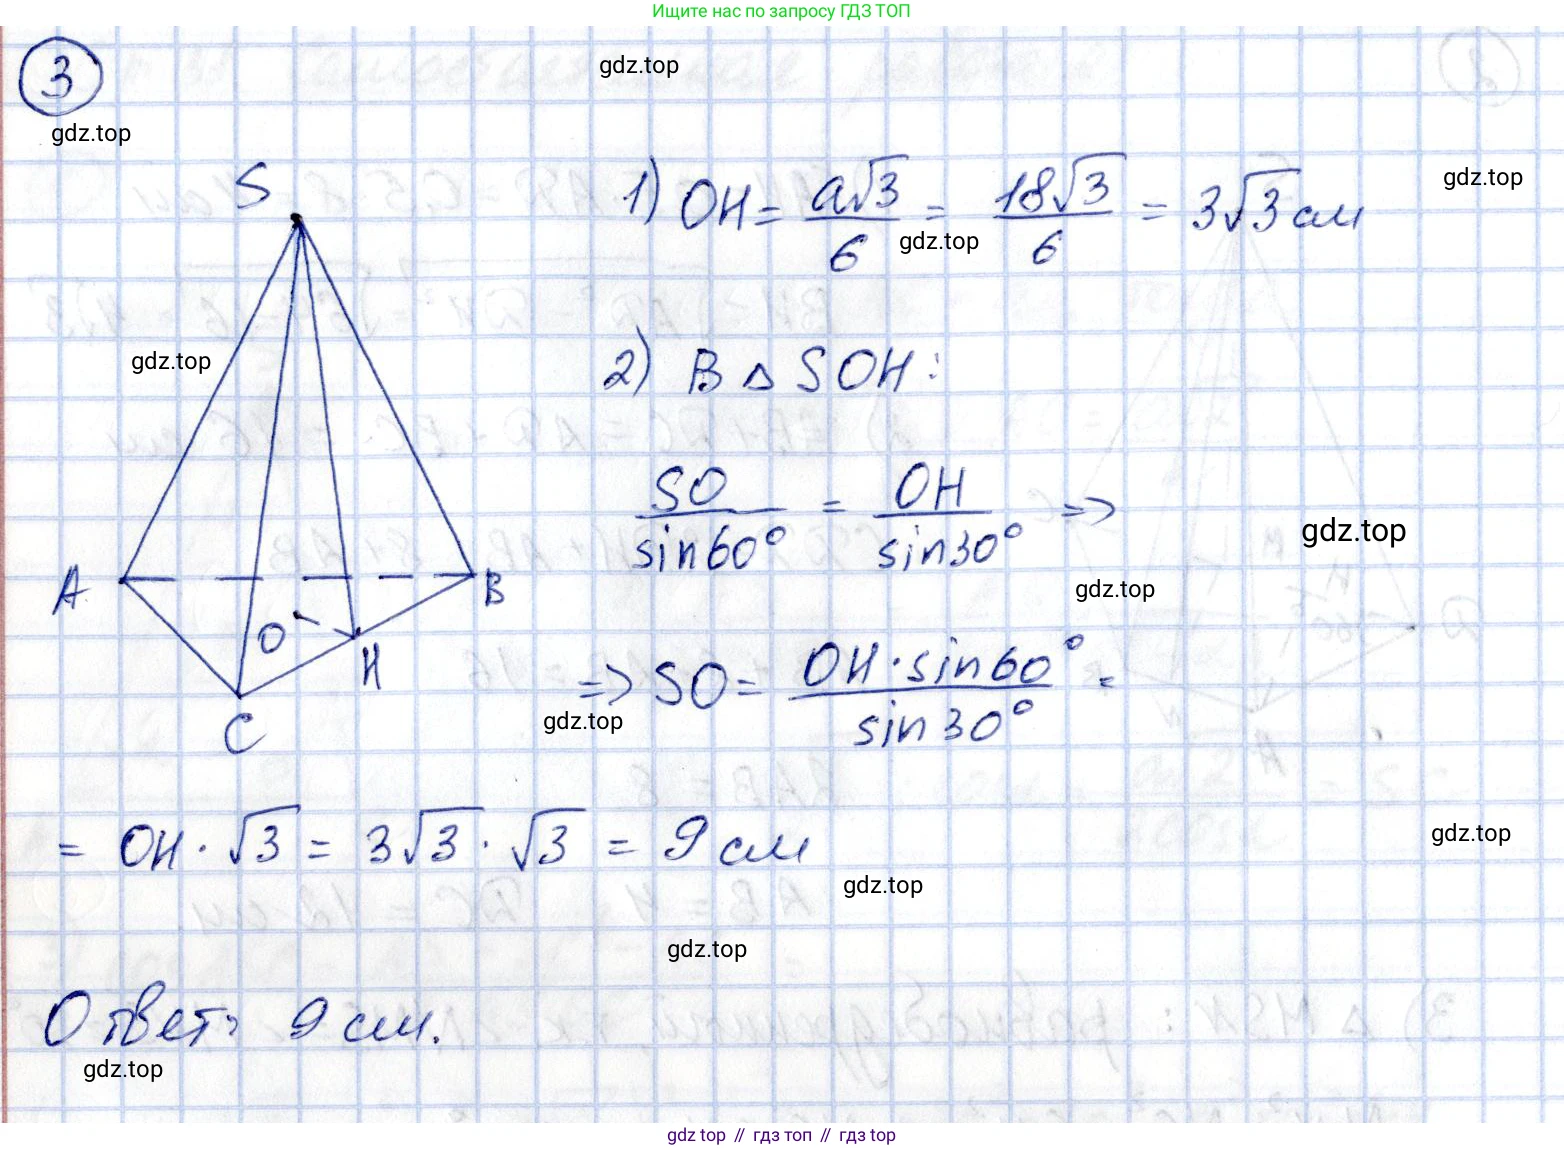 Ищите нас по запросу ГДЗ ТОП
3
gdz.top
gdz.top
S
1) OH = a√3/6 = 18√3/6 = 3√3 см
gdz.top
gdz.top
gdz.top
2) В △ SOH:
SO/sin60° = OH/sin30° =>
gdz.top
gdz.top
A
B
O
H
C
=> SO = OH·sin60°/sin30° =
gdz.top
= OH·√3 = 3√3·√3 = 9 см
gdz.top
gdz.top
gdz.top
Ответ: 9 см.
gdz.top
gdz top // гдз топ // гдз top